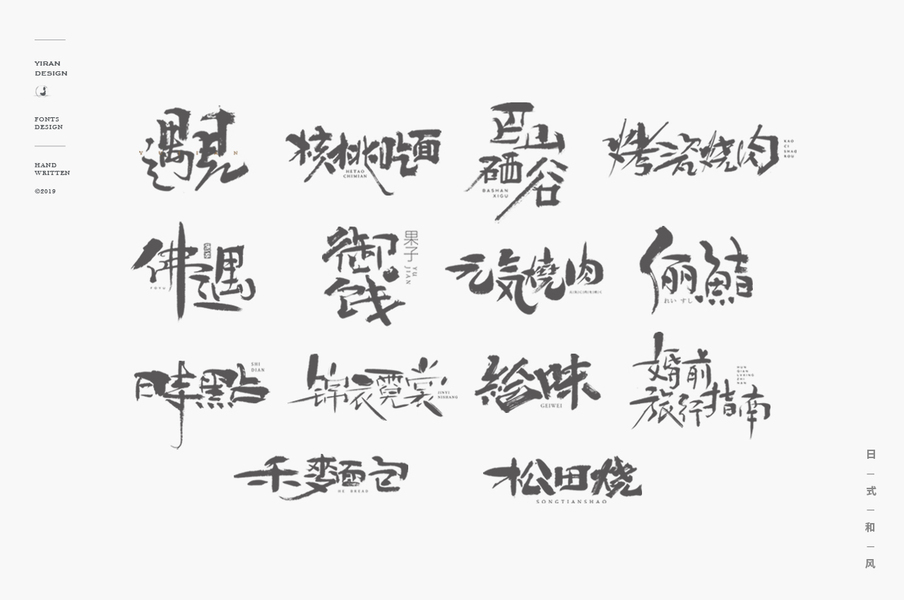 YIRAN
DESIGN
FONTS
DESIGN
HAND
WRITTEN
©2019
遇見
核桃吃面
HETAO
CHIMIAN
巴山
硒谷
BASHAN
XIGU
烤瓷烧肉
KAO
CI
SHAO
ROU
佛遇
御
饯
果子
YU
JIAN
元気燒肉
俪鮨
れい すし
時點
SHI
DIAN
锦衣霓裳
JINYI
NICHANG
給味
GEIWEI
婚前
旅行指南
禾麵包
HE BREAD
松田烧
SONGTIANSHAO
日
式
和
风